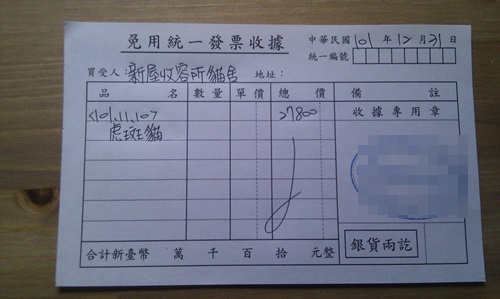 免用統一發票收據
中華民國101年12月31日
統一編號
買受人:新屋收容所貓舍 地址:
品名 數量 單價 總價 備註
<101.11.10> 27800 收據專用章
虎斑貓
銀貨兩訖
合計新臺幣 萬 千 百 拾 元整